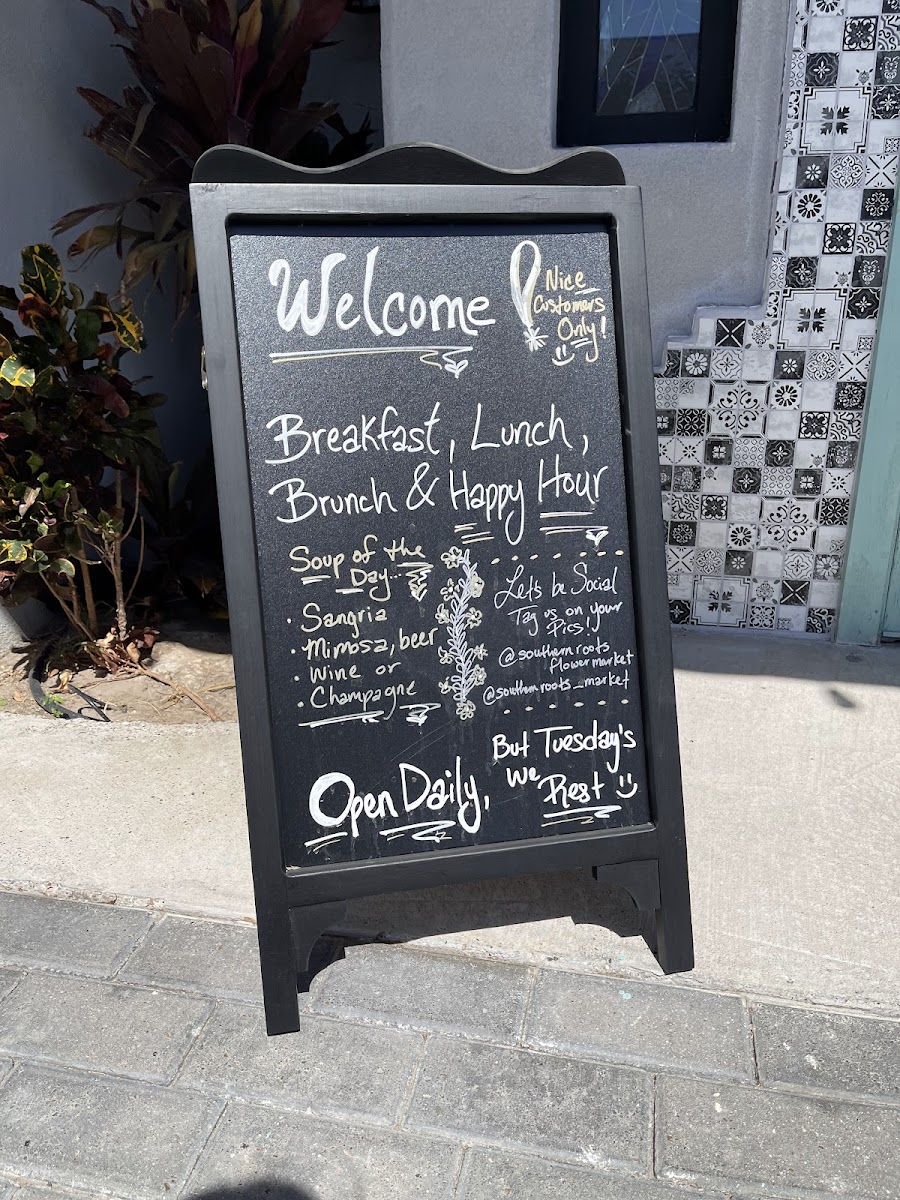 Welcome!
Nice
Customers
Only!
Breakfast, Lunch,
Brunch & Happy Hour
Soup of the
Day...
· Sangria
· Mimosa, beer
· Wine or
· Champagne
Let's be Social
Tag us on your
Pics!
@southernroots
flowermarket
@southernroots_market
Open Daily,
But Tuesday's
We
Rest